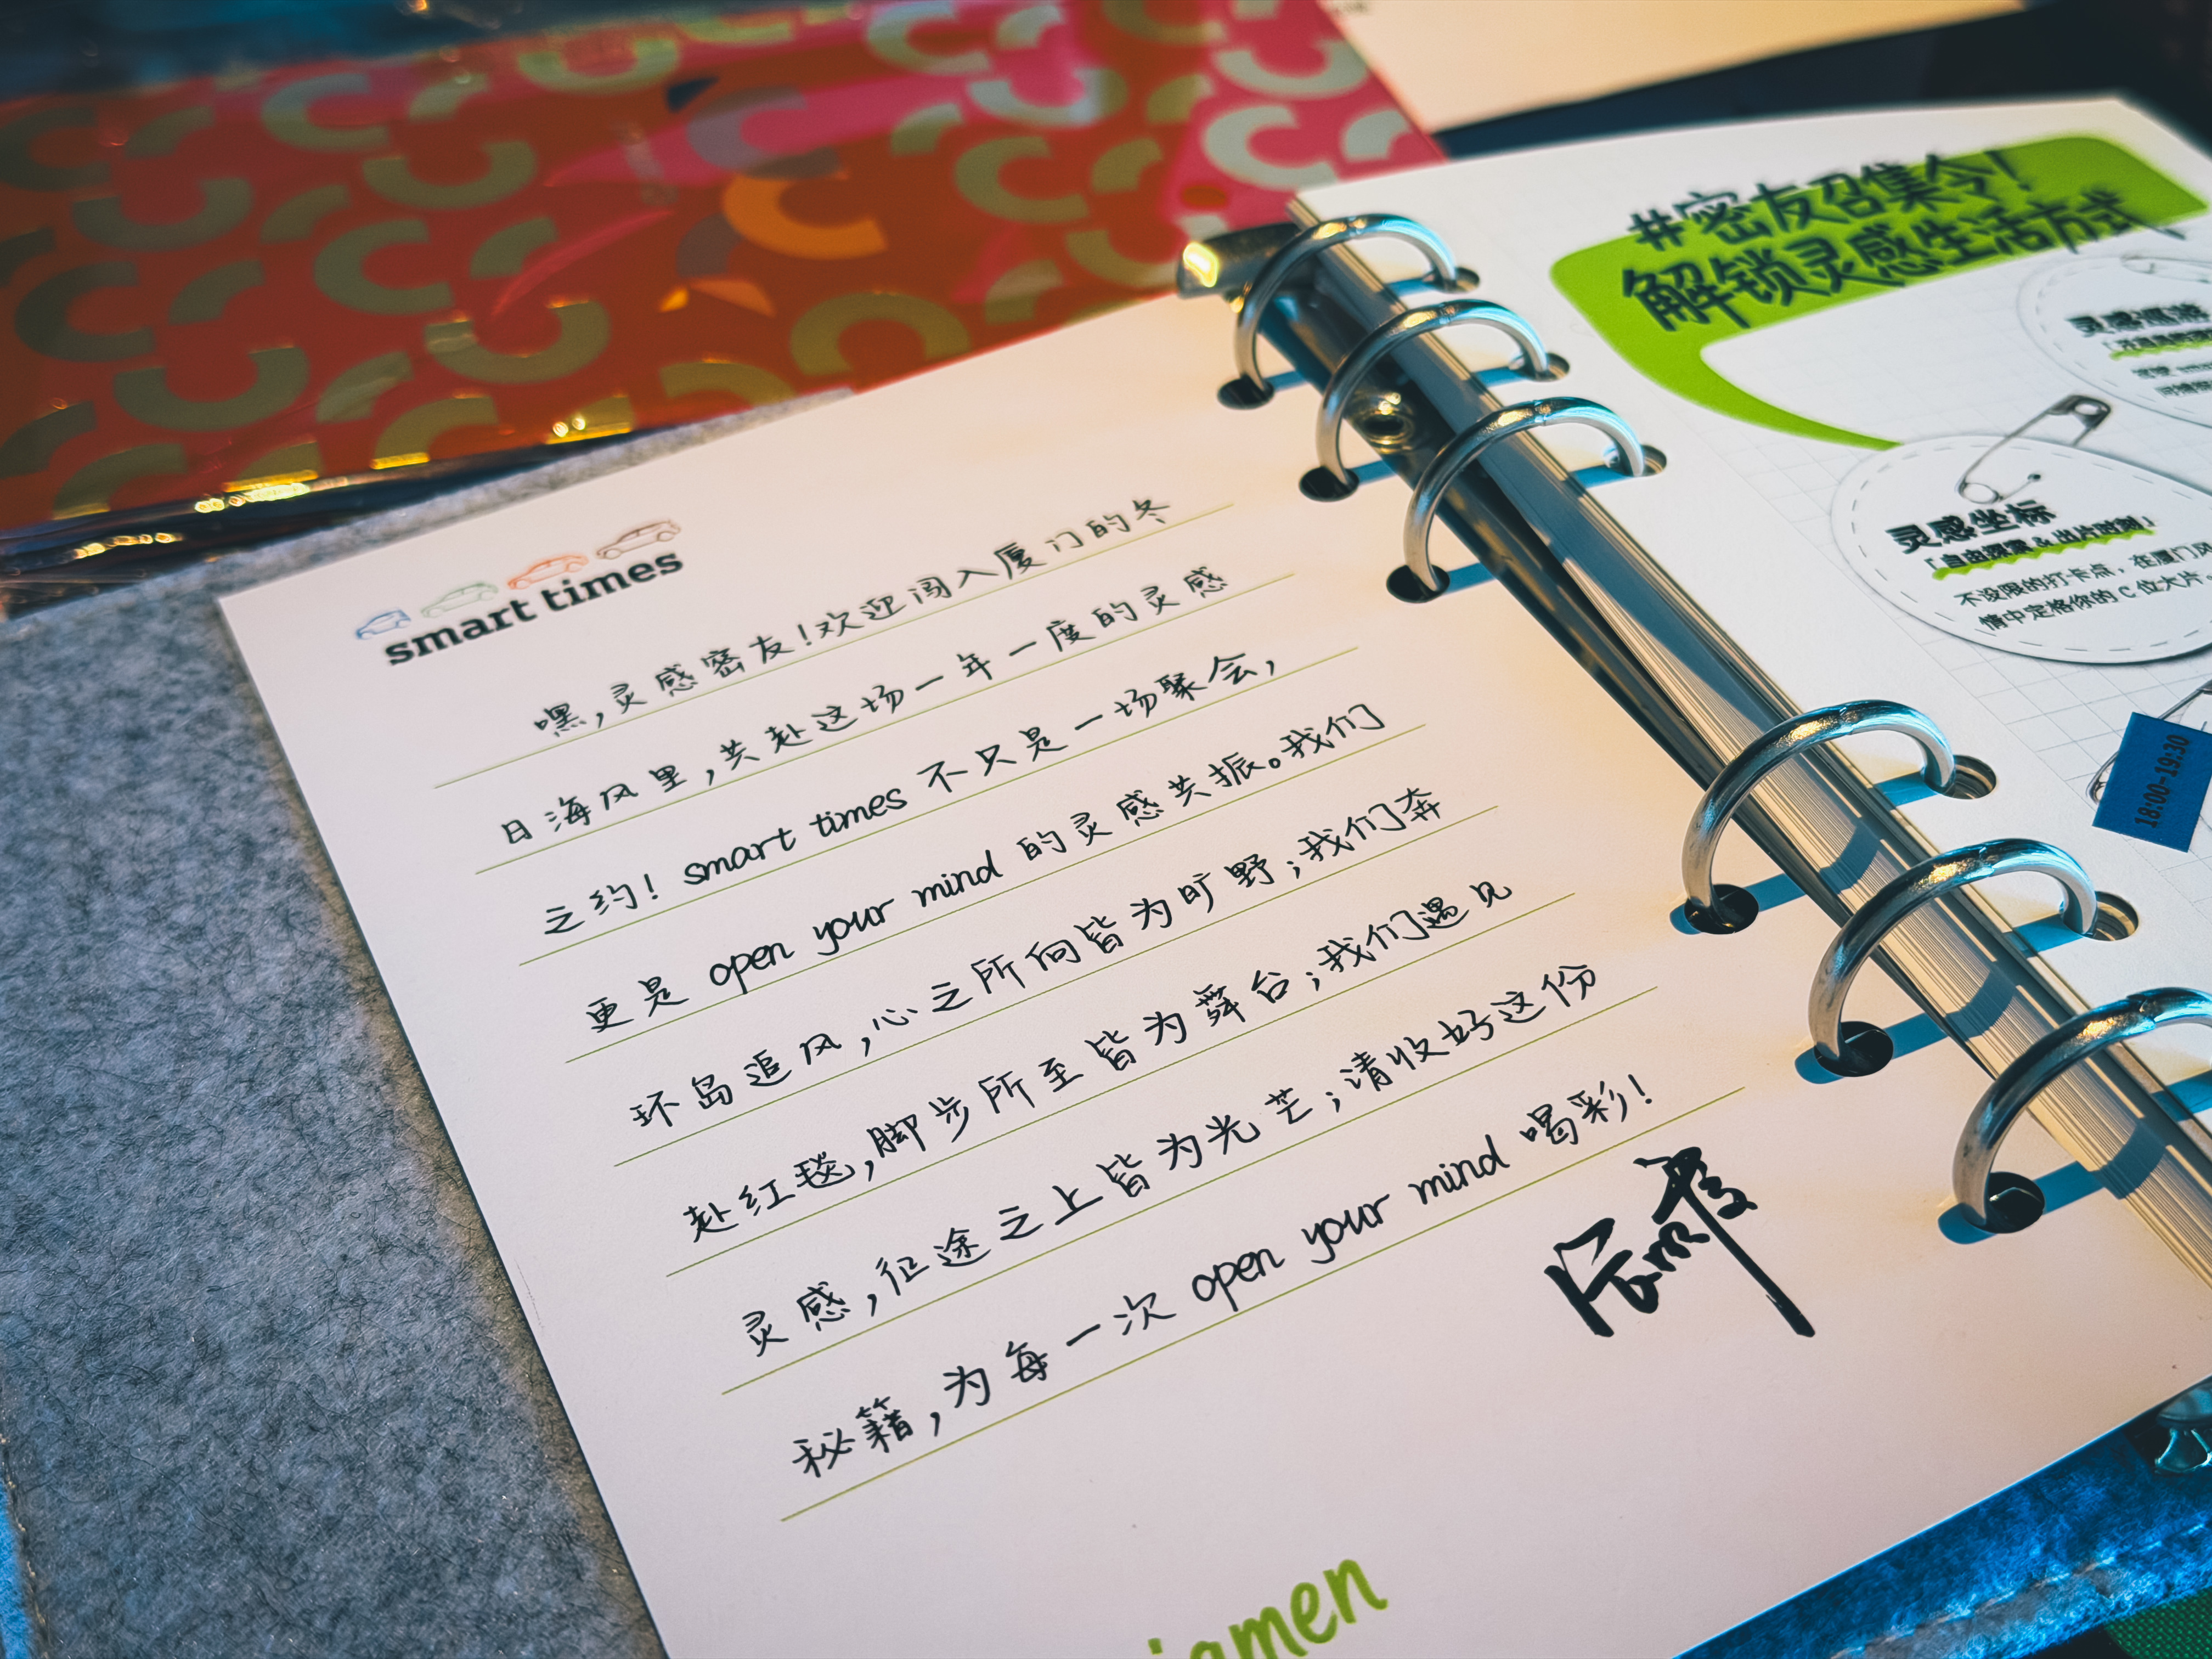 smart times
嘿,灵感密友!欢迎闯入厦门的冬
日海风里,共赴这场一年一度的灵感
之约! smart times 不只是一场聚会,
更是 open your mind 的灵感共振。我们
环岛追风,心之所向皆为旷野;我们奔
赴红毯,脚步所至皆为舞台;我们遇见
灵感,征途之上皆为光芒;请收好这份
秘籍,为每一次 open your mind 喝彩!
iamen
#密友召集令!
解锁灵感生活方式
灵感坐标
「自由探索 & 出片时刻」
不设限的打卡点,在厦门风
情中定格你的 C 位大片。
18:00-19:30